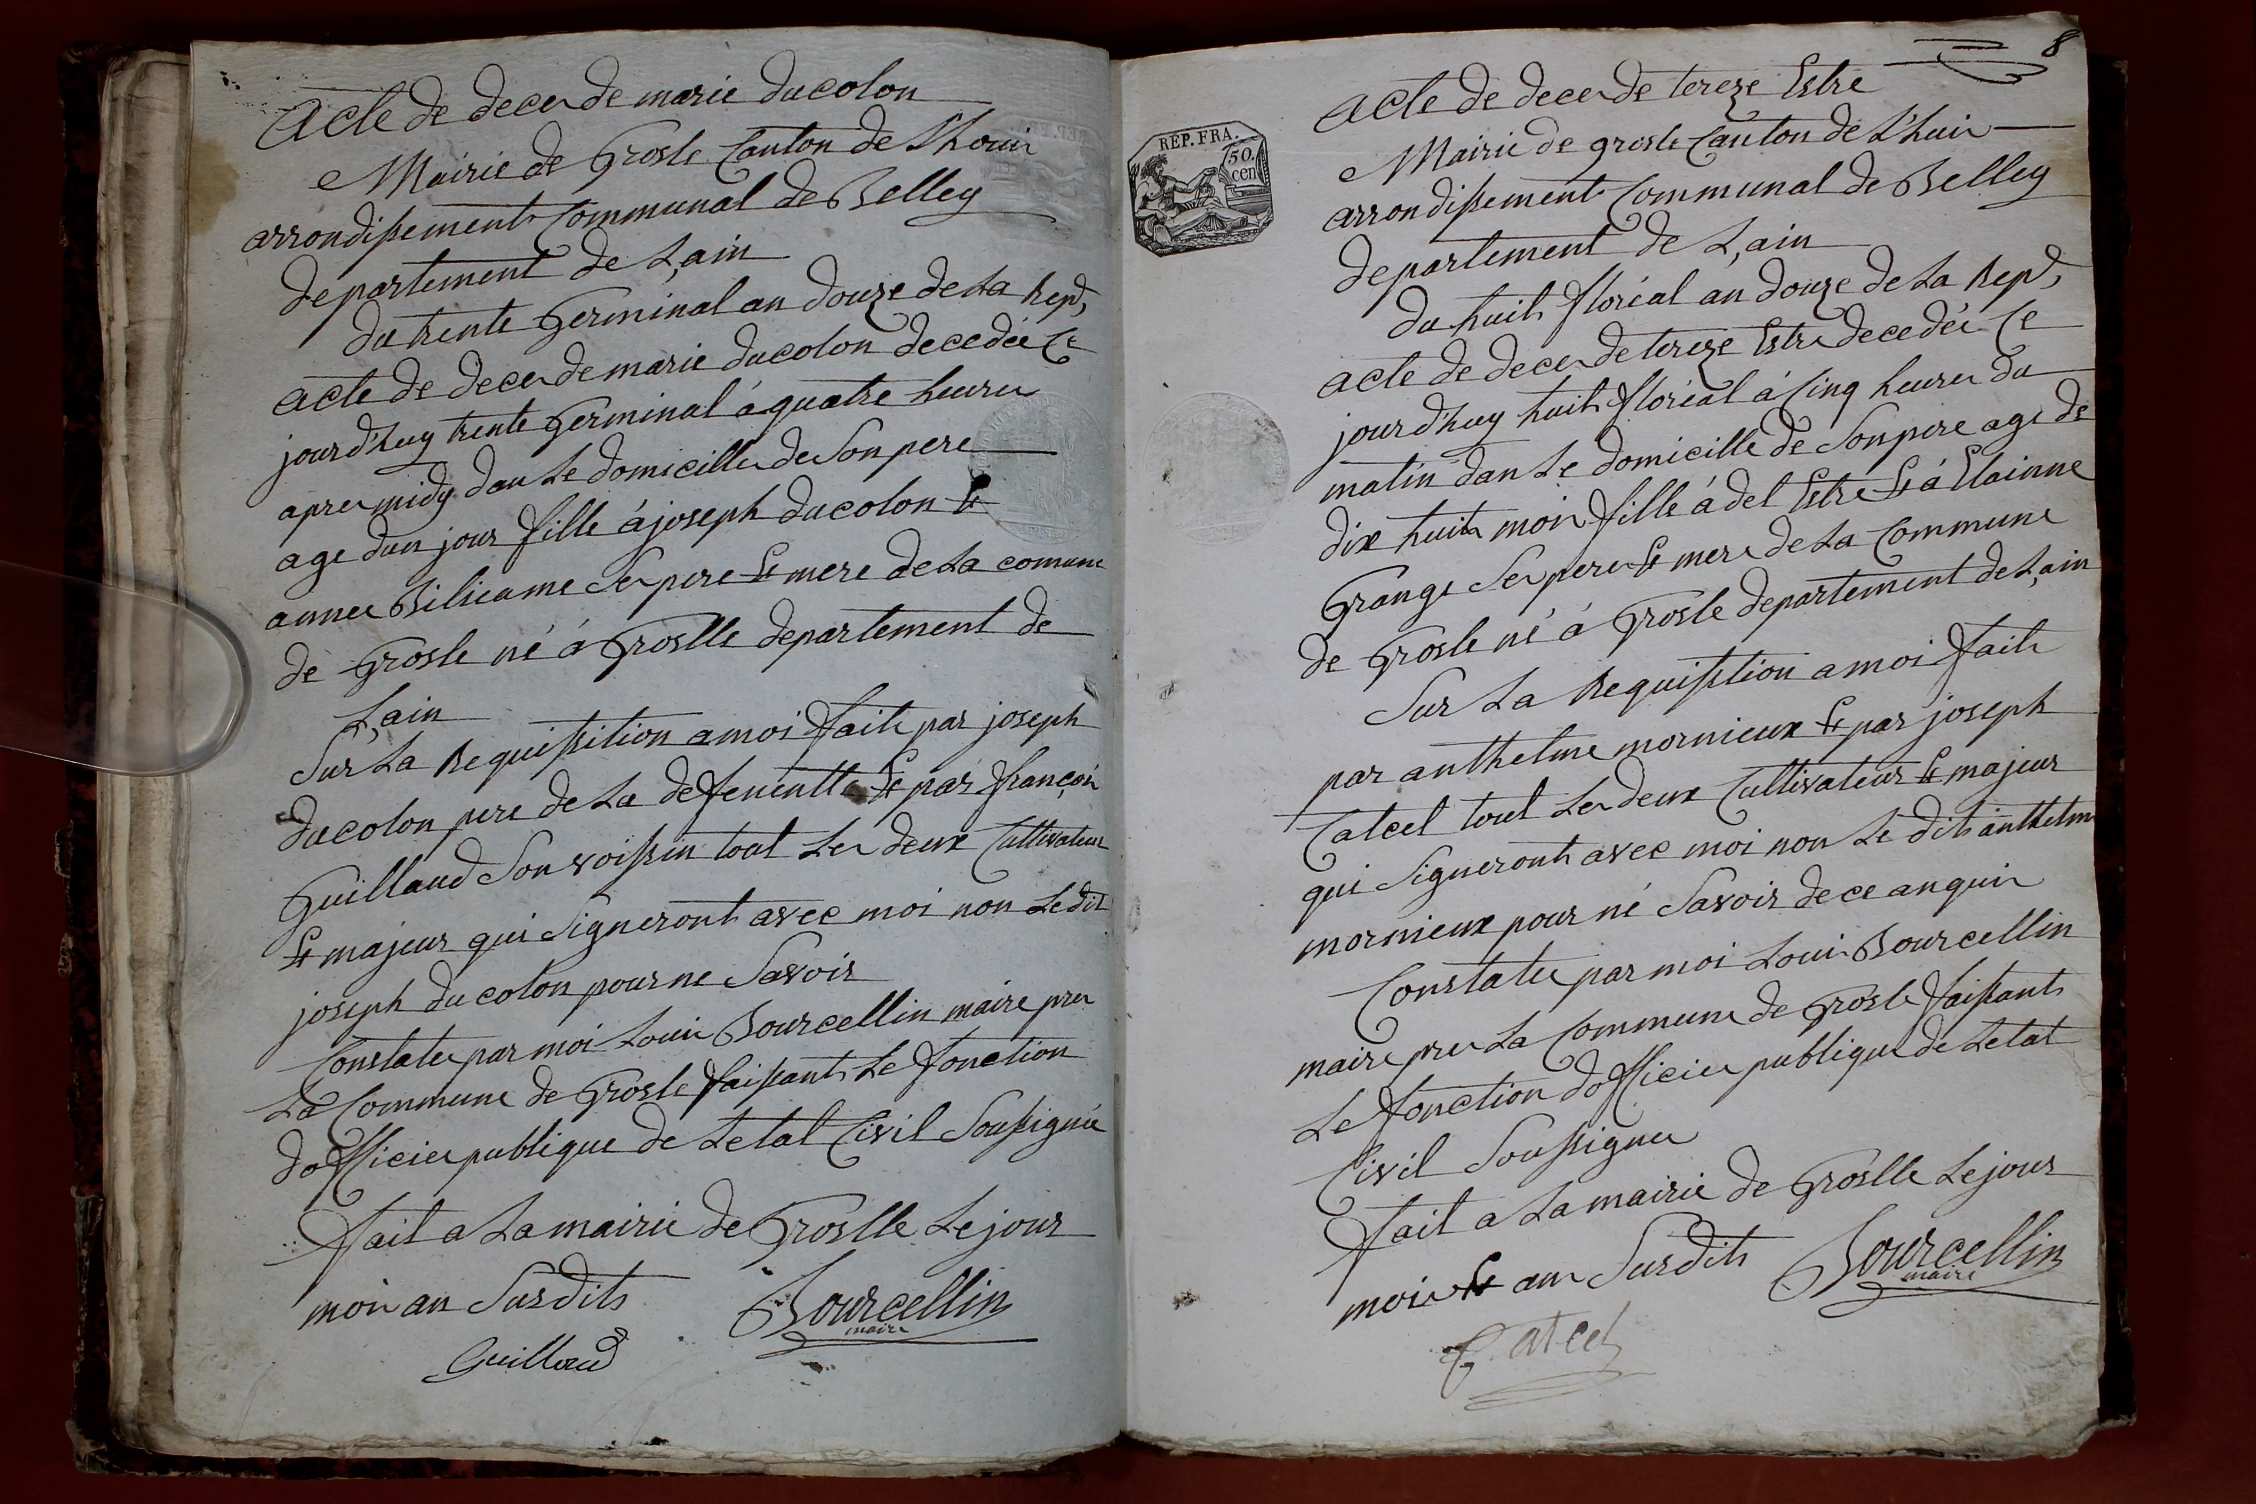 acte de deces de marie ducolon
Mairie de Grosle Canton de Lhouis
arrondissement Communal de Belley
departement de L'ain
du trente Germinal an douze de La Rep.
acte de deces de marie ducolon decedée Ce
jourd'huy trente Germinal á quatre heures
apres midy dans Le domicille de Son pere
age dun jour fille á joseph ducolon Et
annee Ses pere Et mere de La comune
de Grosle né á Groslle departement de
L'ain
Sur La Requissition a moi fait par joseph
ducolon pere de La Et par françois
Guillaud Son voissin tout Les deux Cultivateur
Et majeur qui Signeront avec moi non Ledit
joseph ducolon pour ne Savoir
Constates par moi Louis Bourcellin maire pres
La Commune de Grosle faissant Le fonction
dofficier publique de Letat Civil Soussignée
fait a La mairie de Groslle Le jour
mois an Susdit
Bourcellin
maire
Guillaud
8
acte de deces de tereze Estre
Mairie de grosle Canton de L'huis
REP. FRA.
50.
cen
arrondissement Communal de Belley
departement de L'ain
du huit floréal an douze de La Rep.
acte de deces de tereze Estre decedée Ce
jourd'huy huit floréal á Cinq heures du
matin dans Le domicille de Son pere age de
dix huit mois fille á del Estre Et á Etainne
Grange Ses peres Et mere de La Commune
de Grosle né á Grosle departement de L'ain
Sur La Requisstion a moi fait
par anthelme mornieux Et par joseph
Catcel tout Les deux Cultivateur Et majeur
qui Signeront avec moi non Le dit anthelme
mornieux pour né Savoir de ce anquis
Constates par moi Louis Bourcellin
maire pres La Commune de Grosle faissant
Le fonction dofficier publique de Letat
Civil Soussignes
fait a La mairie de Groslle Le jour
mois Et an Susdit
Bourcellin
maire
Catcel